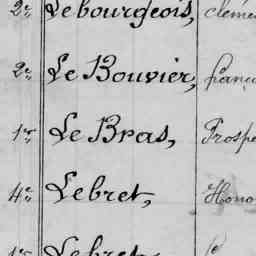 2e Lebourgeois, clém
2e Le Bouvier, franç
1er Le Bras, Prosp
4e Lebret, Hono
1er Lebret,